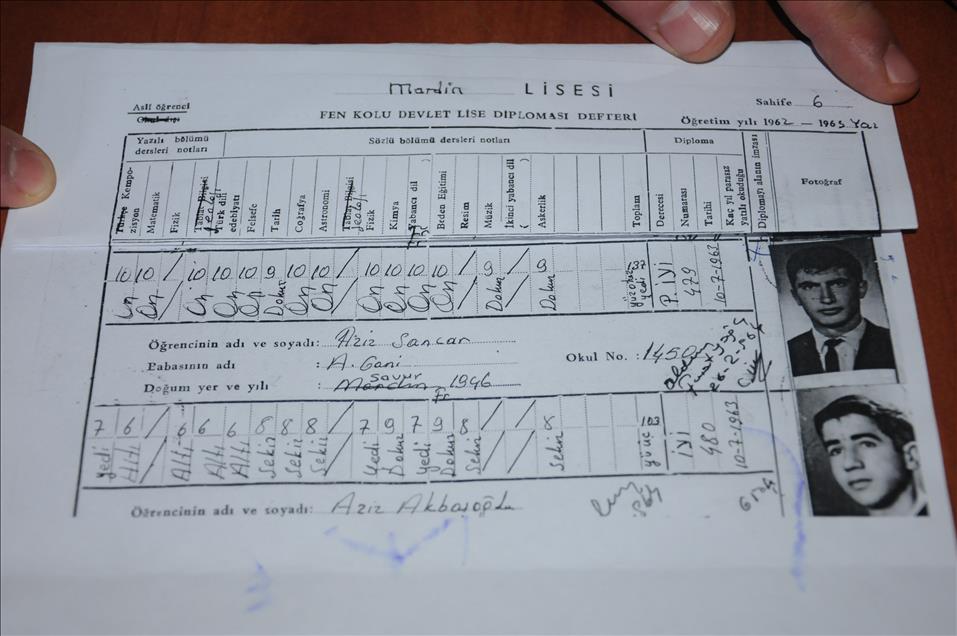 Mardin LİSESİ
Asıl öğrenci
Sahife 6
FEN KOLU DEVLET LİSE DİPLOMASI DEFTERİ
Öğretim yılı 1962 — 1963 Yaz
Yazılı bölümü dersleri notları
Sözlü bölümü dersleri notları
Diploma
Diplomayı alanın imzası
Fotoğraf
Türkçe Kompozisyon
Matematik
Fizik
Tabiat Bilgisi Jeoloji
Türk dili edebiyatı
Felsefe
Tarih
Coğrafya
Astronomi
Tabiat Bilgisi Jeoloji
Fizik
Kimya
Yabancı dil ( )
Beden Eğitimi
Resim
Müzik
İkinci yabancı dil ( )
Askerlik
Toplam
Derecesi
Numarası
Tarihi
Kaç yıl parasız yatılı okuduğu
10 10 / 10 10 10 9 10 10 / 10 10 10 10 / 9 / 9 137 P. İYİ 479 10-7-1963
On On / On On On Dokuz On On / On On On On / Dokuz / Dokuz yüzotuz yedi
Öğrencinin adı ve soyadı: Aziz Sancar
Babasının adı : A. Gani
Okul No. : 1450
Doğum yer ve yılı : Mardin Savur 1946
7 6 / 6 6 6 8 8 8 / 7 9 7 9 8 / / 8 103 İYİ 480 10-7-1963
Yedi Altı / Altı Altı Altı Sekiz Sekiz Sekiz / Yedi Dokuz Yedi Dokuz Sekiz / / Sekiz yüzüç
Öğrencinin adı ve soyadı: Aziz Akbaşoğlu